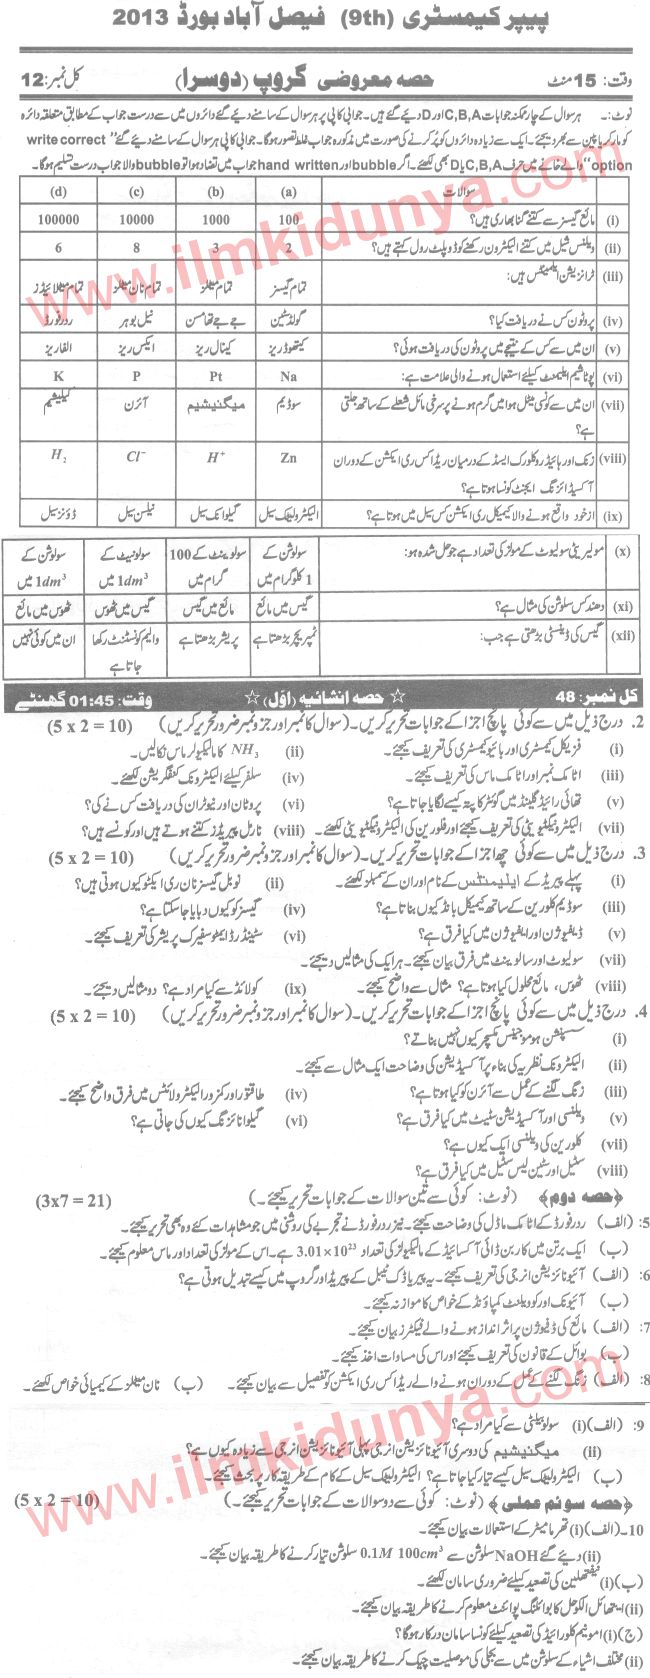 پیپر کیمسٹری (9th) فیصل آباد بورڈ 2013
وقت: 15 منٹ حصہ معروضی گروپ (دوسرا) کل نمبر: 12
نوٹ:۔ ہر سوال کے چار ممکنہ جوابات C,B,A اور D دیے گئے ہیں۔ جوابی کاپی پر ہر سوال کے سامنے دیے گئے دائروں میں سے درست جواب کے مطابق متعلقہ دائرہ
کو مارکر یا پین سے بھر دیجئے۔ ایک سے زیادہ دائروں کو پُر کرنے کی صورت میں مذکورہ جواب غلط تصور ہوگا۔ جوابی کاپی پر ہر سوال کے سامنے دیے گئے "write correct
option" والے خانے میں حرف C,B,A یا D بھی لکھئے۔ اگر bubble اور hand written جواب میں تضاد ہوا تو bubble والا جواب درست تسلیم ہوگا۔
سوالات (a) (b) (c) (d)
(i) مائع گیسز سے کتنے گنا بھاری ہیں؟ 100 1000 10000 100000
(ii) ویلنس شیل میں کتنے الیکٹرون رکھنے کو ڈوپلٹ رول کہتے ہیں؟ 2 3 8 6
(iii) ٹرانزیشن ایلیمنٹس ہیں: تمام گیسز تمام میٹلز تمام نان میٹلز تمام میٹلائیڈز
(iv) پروٹون کس نے دریافت کیا؟ گولڈسٹین جے جے تھامسن نیل بوہر ردرفورڈ
(v) ان میں سے کس کے نتیجے میں پروٹون کی دریافت ہوئی؟ کیتھوڈ ریز کینال ریز ایکس ریز الفا ریز
(vi) پوٹاشیم ایلیمنٹ کیلئے استعمال ہونے والی علامت ہے: Na Pt P K
(vii) ان میں سے کونسی میٹل ہوا میں گرم ہونے پر سرخی مائل شعلے کے ساتھ جلتی ہے؟ سوڈیم میگنیشیم آئرن کیلشیم
(viii) زنک اور ہائیڈروکلورک ایسڈ کے درمیان ریڈاکس ری ایکشن کے دوران آکسیڈائزنگ ایجنٹ کونسا ہوتا ہے؟ Zn H⁺ Cl⁻ H₂
(ix) ازخود واقع ہونے والا کیمیکل ری ایکشن کس سیل میں ہوتا ہے؟ الیکٹرولیٹک سیل گیلوانک سیل نیلسن سیل ڈاؤنز سیل
(x) مولیریٹی سولیوٹ کے مولز کی تعداد ہے جو حل شدہ ہو: سولوشن کے 1 کلوگرام میں سولوینٹ کے 100 گرام میں سولوینٹ کے 1dm³ میں سولوشن کے 1dm³ میں
(xi) دھند کس سلوشن کی مثال ہے؟ گیس میں مائع مائع میں گیس گیس میں ٹھوس ٹھوس میں مائع
(xii) گیس کی ڈینسٹی بڑھتی ہے جب: ٹمپریچر بڑھتا ہے پریشر بڑھتا ہے والیم کونسٹنٹ رکھا جاتا ہے ان میں کوئی نہیں
کل نمبر: 48 ☆ حصہ انشائیہ (اوّل) ☆ وقت: 01:45 گھنٹے
2. درج ذیل میں سے کوئی پانچ اجزا کے جوابات تحریر کریں۔ (سوال کا نمبر اور جز و نمبر ضرور تحریر کریں) (5 x 2 = 10)
(i) فزیکل کیمسٹری اور بائیو کیمسٹری کی تعریف کیجئے۔ (ii) NH₃ کا مالیکیولر ماس نکالیں۔
(iii) اٹامک نمبر اور اٹامک ماس کی تعریف کیجئے۔ (iv) سلفر کیلئے الیکٹرونک کنفگریشن لکھئے۔
(v) تھائی رائیڈ گلینڈ میں گوئٹر کا پتہ کیسے لگایا جاتا ہے؟ (vi) پروٹان اور نیوٹران کی دریافت کس نے کی؟
(vii) الیکٹرونیگیٹیویٹی کی تعریف کیجئے اور فلورین کی الیکٹرونیگیٹیویٹی لکھئے۔ (viii) نارمل پیریڈز کتنے ہوتے ہیں اور کونسے ہیں؟
3. درج ذیل میں سے کوئی چھ اجزا کے جوابات تحریر کریں۔ (سوال کا نمبر اور جز و نمبر ضرور تحریر کریں) (5 x 2 = 10)
(i) پہلے پیریڈ کے ایلیمنٹس کے نام اور ان کے سمبلز لکھئے۔ (ii) نوبل گیسز نان ری ایکٹو کیوں ہوتی ہیں؟
(iii) سوڈیم کلورین کے ساتھ کیمیکل بانڈ کیوں بناتا ہے؟ (iv) گیسز کو کیوں دبایا جا سکتا ہے؟
(v) ڈیفیوژن اور ایفیوژن میں کیا فرق ہے؟ (vi) سٹینڈرڈ ایٹموسفیرک پریشر کی تعریف کیجئے۔
(vii) سولیوٹ اور سالوینٹ میں فرق بیان کیجئے۔ ہر ایک کی مثالیں دیجئے۔
(viii) ٹھوس، مائع محلول کیا ہوتا ہے؟ مثال سے واضح کیجئے۔ (ix) کولائڈ سے کیا مراد ہے؟ دو مثالیں دیجئے۔
4. درج ذیل میں سے کوئی پانچ اجزا کے جوابات تحریر کریں۔ (سوال کا نمبر اور جز و نمبر ضرور تحریر کریں) (5 x 2 = 10)
(i) سسپنشن ہوموجینس مکسچر کیوں نہیں بناتے؟
(ii) الیکٹرونک نظریہ کی بناء پر آکسیڈیشن کی وضاحت ایک مثال سے کیجئے۔
(iii) زنگ لگنے کے عمل سے آئرن کو کیا ہوتا ہے؟ (iv) طاقتور اور کمزور الیکٹرولائٹس میں فرق واضح کیجئے۔
(v) ویلنسی اور آکسیڈیشن سٹیٹ میں کیا فرق ہے؟ (vi) گیلوانائزنگ کیوں کی جاتی ہے؟
(vii) کلورین کی ویلنسی ایک کیوں ہے؟
(viii) سٹیل اور سٹین لیس سٹیل میں کیا فرق ہے؟
﴿حصہ دوم﴾ (نوٹ: کوئی سے تین سوالات کے جوابات تحریر کیجئے۔) (3x7 = 21)
5: (الف) ردرفورڈ کے اٹامک ماڈل کی وضاحت کیجئے۔ نیز ردرفورڈ نے تجربے کی روشنی میں جو مشاہدات کئے وہ بھی تحریر کیجئے۔
(ب) ایک برتن میں کاربن ڈائی آکسائیڈ کے مالیکیولز کی تعداد 3.01×10²³ ہے۔ اس کے مولز کی تعداد اور ماس معلوم کیجئے۔
6: (الف) آئیونائزیشن انرجی کی تعریف کیجئے۔ یہ پیریاڈک ٹیبل کے پیریڈ اور گروپ میں کیسے تبدیل ہوتی ہے؟
(ب) آئیونک اور کوویلنٹ کمپاؤنڈ کے خواص کا موازنہ کیجئے۔
7: (الف) مائع کی ڈفیوژن پر اثر انداز ہونے والے فیکٹرز بیان کیجئے۔
(ب) بوائل کے قانون کی تعریف کیجئے اور اس کی مساوات اخذ کیجئے۔
8: (الف) زنگ لگنے کے عمل کے دوران ہونے والے ریڈاکس ری ایکشن کو تفصیل سے بیان کیجئے۔ (ب) نان میٹلز کے کیمیائی خواص لکھئے۔
9: (الف) (i) سولوبیلٹی سے کیا مراد ہے؟
(ii) میگنیشیم کی دوسری آئیونائزیشن انرجی پہلی آئیونائزیشن انرجی سے زیادہ کیوں ہے؟
(ب) الیکٹرولیٹک سیل کیسے تیار کیا جاتا ہے؟ الیکٹرولیٹک سیل کے کام کے طریقہ کار پر بحث کیجئے۔
﴿حصہ سوئم عملی﴾ (نوٹ: کوئی سے دو سوالات کے جوابات تحریر کیجئے۔) (5 x 2 = 10)
10۔ (الف) (i) تھرمامیٹر کے استعمالات بیان کیجئے۔
(ii) دیے گئے NaOH سلوشن سے 0.1M 100cm³ سلوشن تیار کرنے کا طریقہ بیان کیجئے۔
(ب) (i) نیفتھلین کی تصعید کیلئے ضروری سامان لکھئے۔
(ii) ایتھائل الکوحل کا بوائلنگ پوائنٹ معلوم کرنے کا طریقہ بیان کیجئے۔
(ج) (i) امونیم کلورائیڈ کی تصعید کیلئے کونسا سامان درکار ہوگا؟
(ii) مختلف اشیاء کے سلوشن میں سے بجلی کی موصلیت چیک کرنے کا طریقہ بیان کیجئے۔
www.ilmkidunya.com
www.ilmkidunya.com